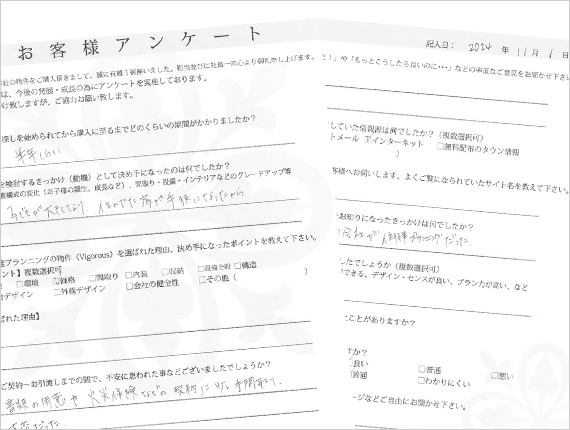 お客様アンケート
社の物件をご購入頂きまして、誠に有難う御座いました。担当並びに社員一同心より御礼申し上げます。
は、今後の発展・成長の為にアンケートを実施しております。
け致しますが、ご協力お願い致します。
探しを始められてから購入に至るまでどのくらいの期間がかかりましたか?
半年くらい
を検討するきっかけ(動機)として決め手になったのは何でしたか?
族構成の変化(お子様の誕生、成長など)、間取り・設備・インテリアなどのグレードアップ等
子どもが大きくなり、住んでた家が手狭になったから
プランニングの物件(Vigorous)を選ばれた理由、決め手になったポイントを教えて下さい。
ント】複数選択可
□環境 ☑価格 □間取り □内装 □収納 □設備全般 □構造
デザイン □外構デザイン □会社の健全性 □その他( )
ばれた理由】
ご契約〜お引渡しまでの間で、不安に思われた事などございましたでしょうか?
書類の用意や火災保険などの契約に
記入日: 2024 年 11 月 1 日
」や「もっとこうしたら良いのに・・・」などの率直なご意見をお聞かせ下さい
していた情報源は何でしたか?(複数選択可)
トメール ☑インターネット □無料配布のタウン情報
)
客様へお伺いします。よくご覧になられていたサイト名を教えて下さい。
お知りになったきっかけは何でしたか?
会社が住建プランニングだった
したでしょうか(複数選択可)
できる、デザイン・センスが良い、プラン力が高い、など
ことがありますか?
か?
良い □普通 □悪い
普通 □わかりにくい
ージなどご自由にお聞かせ下さい。